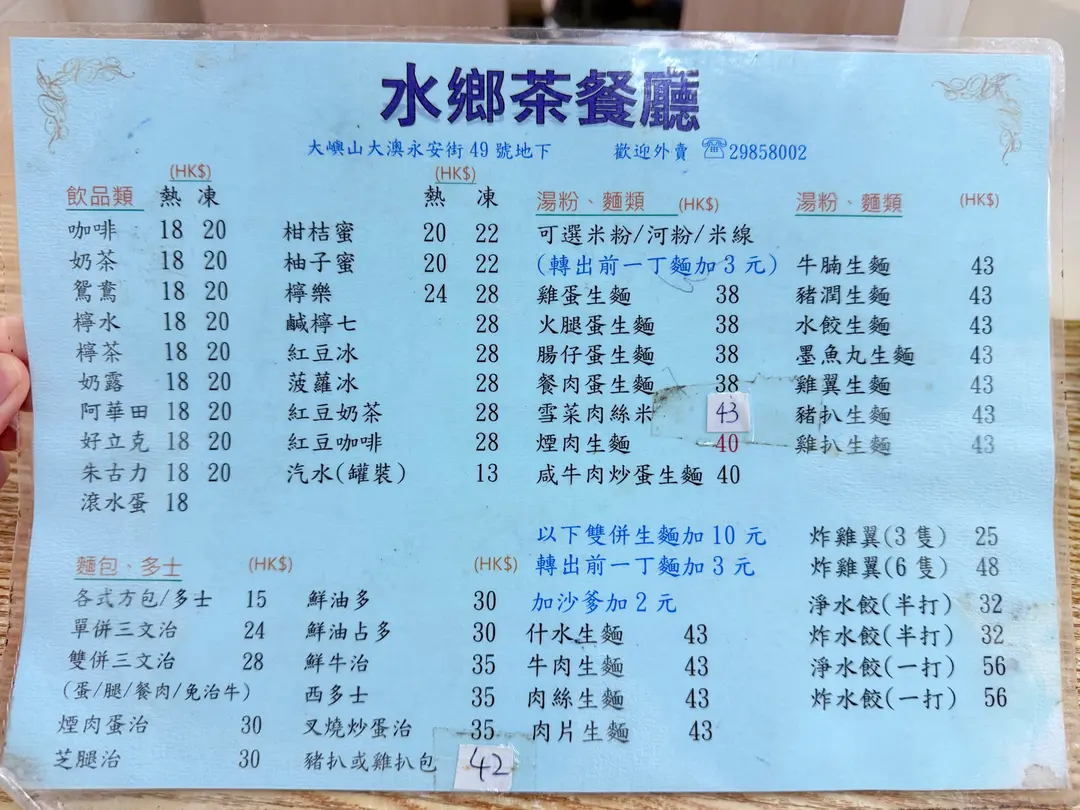 水鄉茶餐廳
大嶼山大澳永安街49號地下 歡迎外賣 ☎29858002
飲品類 (HK$)
熱 凍
咖啡 18 20
奶茶 18 20
鴛鴦 18 20
檸水 18 20
檸茶 18 20
奶露 18 20
阿華田 18 20
好立克 18 20
朱古力 18 20
滾水蛋 18
(HK$)
熱 凍
柑桔蜜 20 22
柚子蜜 20 22
檸樂 24 28
鹹檸七 28
紅豆冰 28
菠蘿冰 28
紅豆奶茶 28
紅豆咖啡 28
汽水(罐裝) 13
湯粉、麵類 (HK$)
可選米粉/河粉/米線
(轉出前一丁麵加3元)
雞蛋生麵 38
火腿蛋生麵 38
腸仔蛋生麵 38
餐肉蛋生麵 38
雪菜肉絲米 43
煙肉生麵 40
咸牛肉炒蛋生麵 40
湯粉、麵類 (HK$)
牛腩生麵 43
豬潤生麵 43
水餃生麵 43
墨魚丸生麵 43
雞翼生麵 43
豬扒生麵 43
雞扒生麵 43
麵包、多士 (HK$)
各式方包/多士 15
單併三文治 24
雙併三文治 28
(蛋/腿/餐肉/免治牛)
煙肉蛋治 30
芝腿治 30
(HK$)
鮮油多 30
鮮油占多 30
鮮牛治 35
西多士 35
叉燒炒蛋治 35
豬扒或雞扒包 42
以下雙併生麵加10元
轉出前一丁麵加3元
加沙爹加2元
什水生麵 43
牛肉生麵 43
肉絲生麵 43
肉片生麵 43
炸雞翼(3隻) 25
炸雞翼(6隻) 48
淨水餃(半打) 32
炸水餃(半打) 32
淨水餃(一打) 56
炸水餃(一打) 56